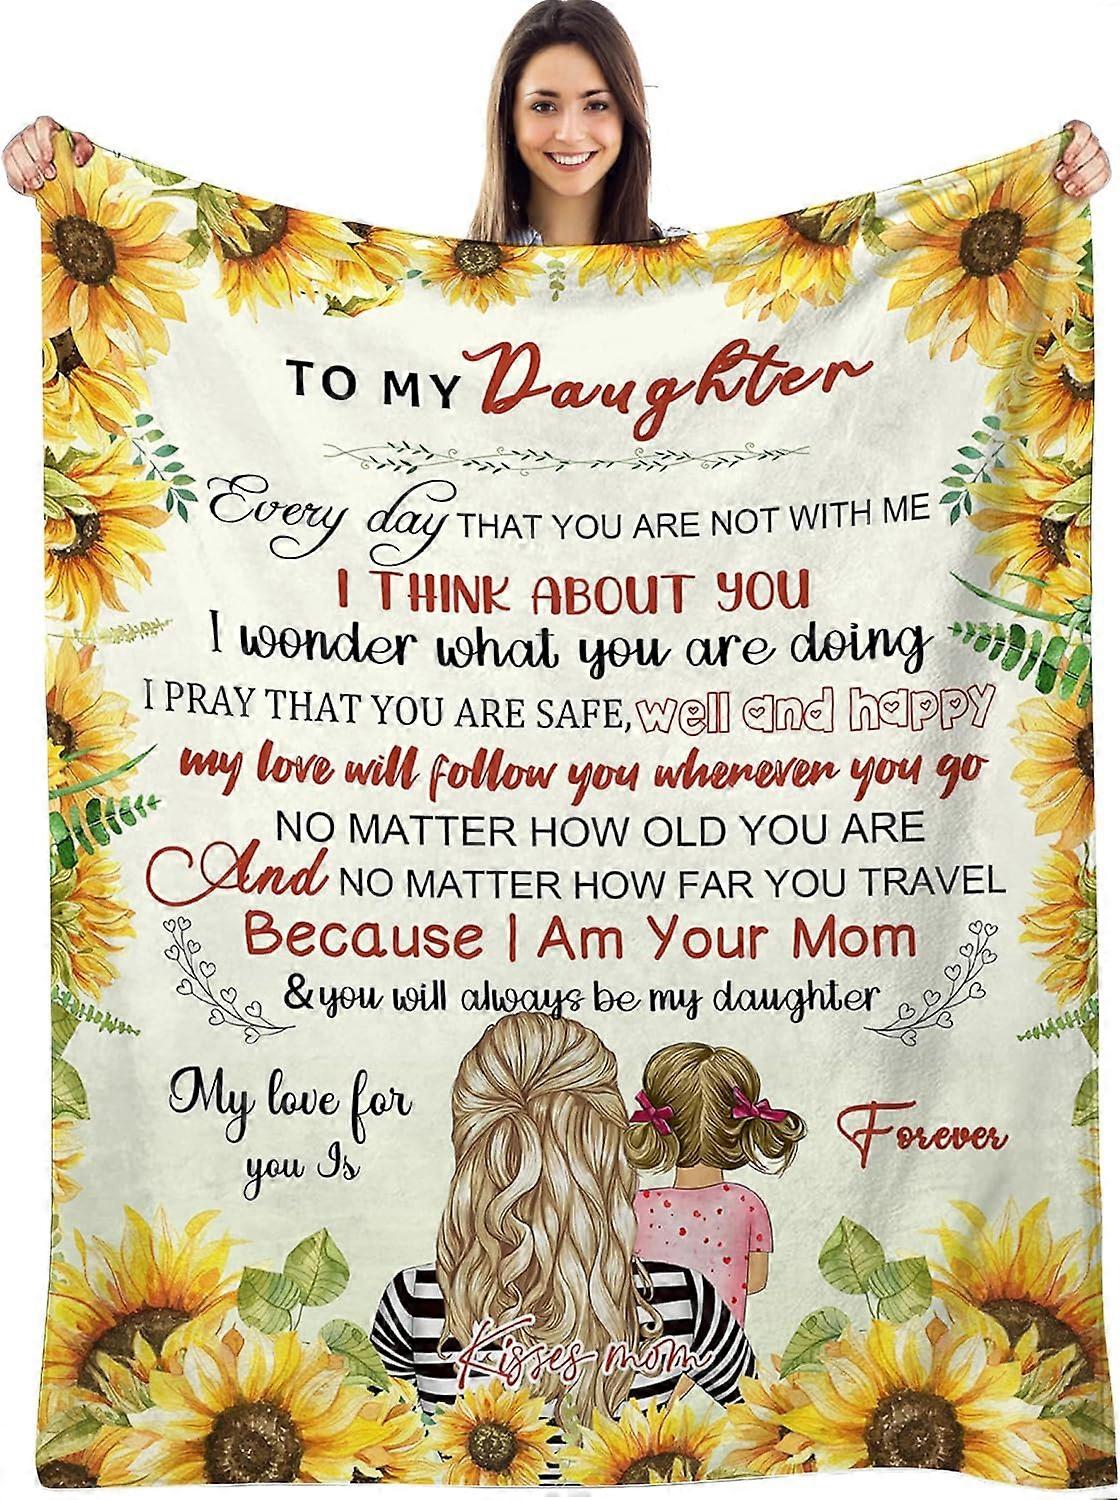 TO MY Daughter
Every day THAT YOU ARE NOT WITH ME
I THINK ABOUT YOU
I wonder what you are doing
I PRAY THAT YOU ARE SAFE, well and happy
my love will follow you whenever you go
NO MATTER HOW OLD YOU ARE
And NO MATTER HOW FAR YOU TRAVEL
Because I Am Your Mom
& you will always be my daughter
My love for
you Is
Forever
Kisses mom